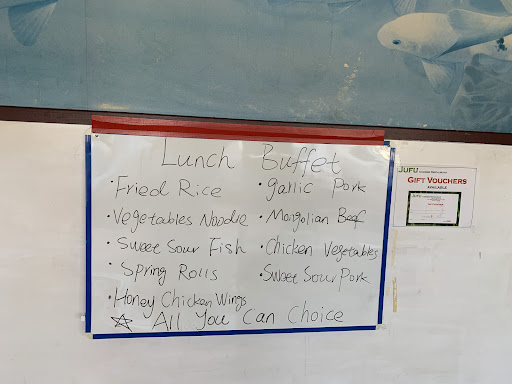 Lunch Buffet
• Fried Rice
• Vegetables Noodle
• Sweet Sour Fish
• Spring Rolls
• Honey Chicken Wings
• garlic Pork
• Mongolian Beef
• Chicken Vegetables
• Sweet Sour Pork
☆ All You Can Choice
JUFU
GIFT VOUCHERS
AVAILABLE
JUFU